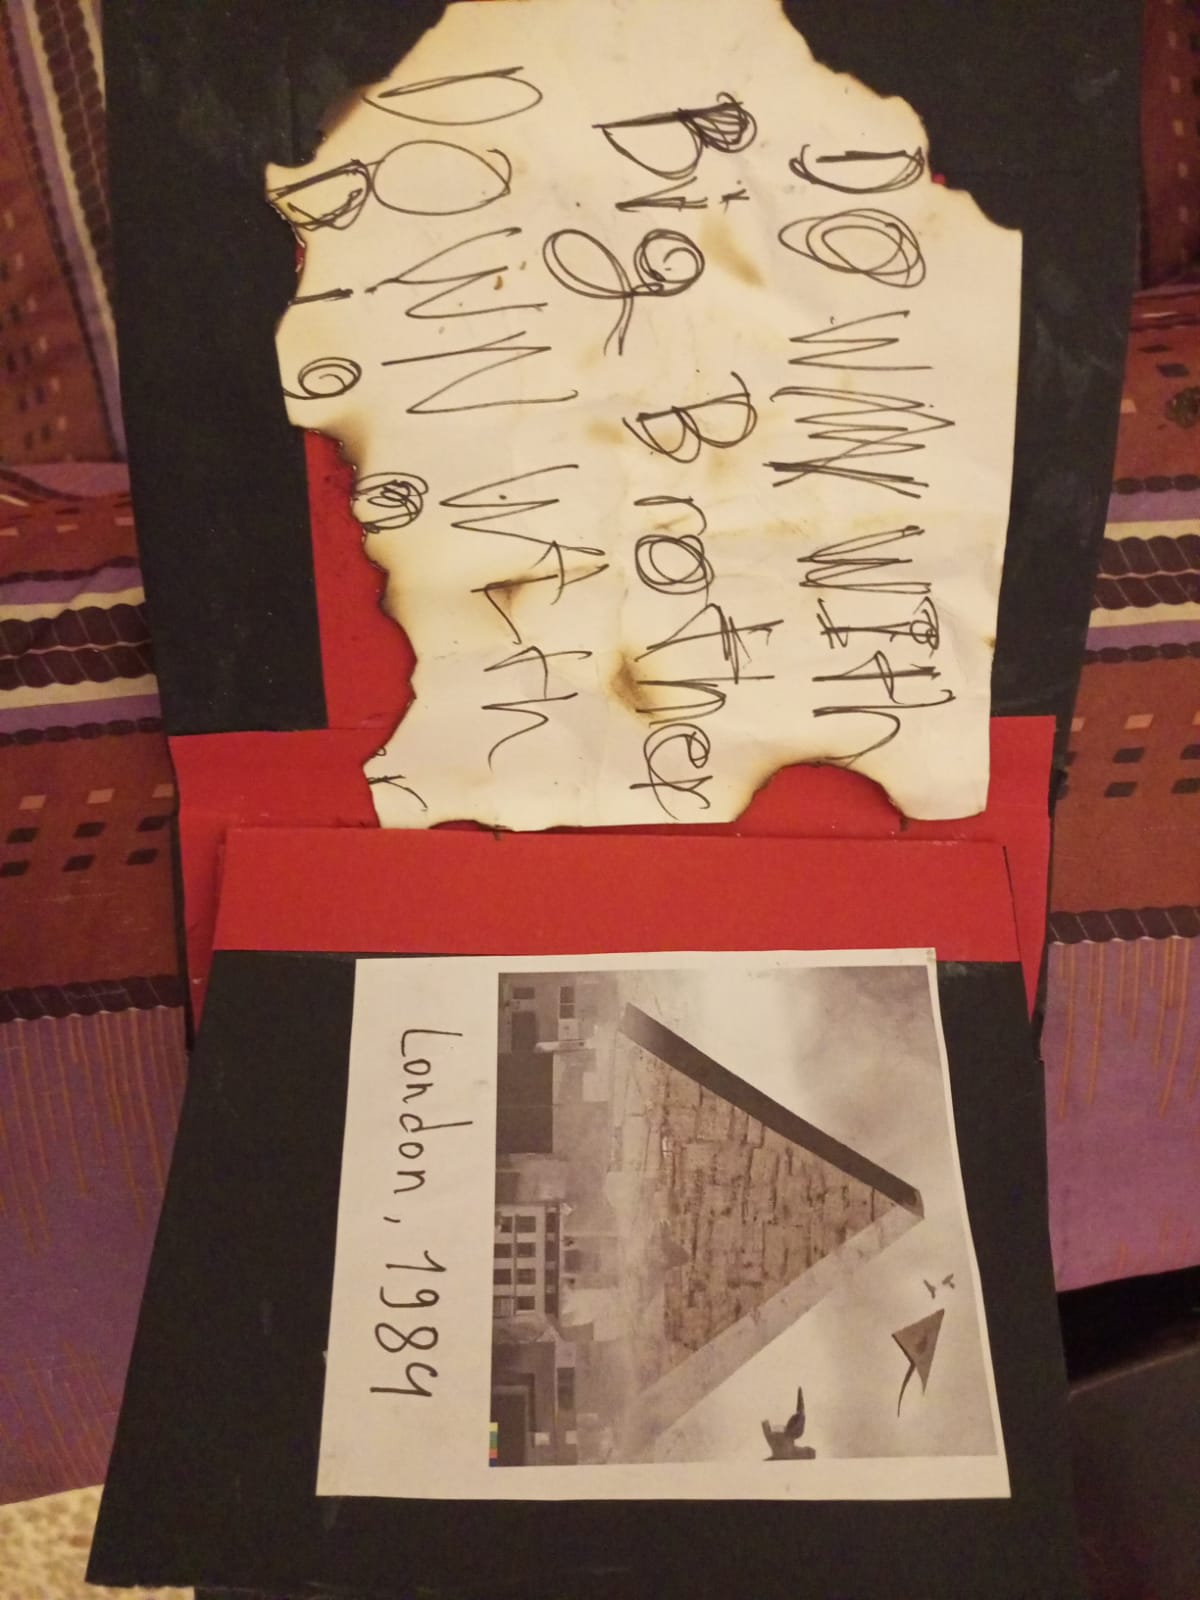 DOWN WITH
Big Brother
DOWN WITH
Big
London, 1984